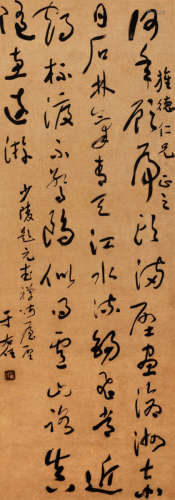 德仁兄正之
何年顧虎頭滿壁畫滄洲赤
日石林氣青天江水流錫飛常近
鶴杯渡不驚鷗似得廬山路真
隨惠遠遊
少陵題元武禪師屋壁
于右任